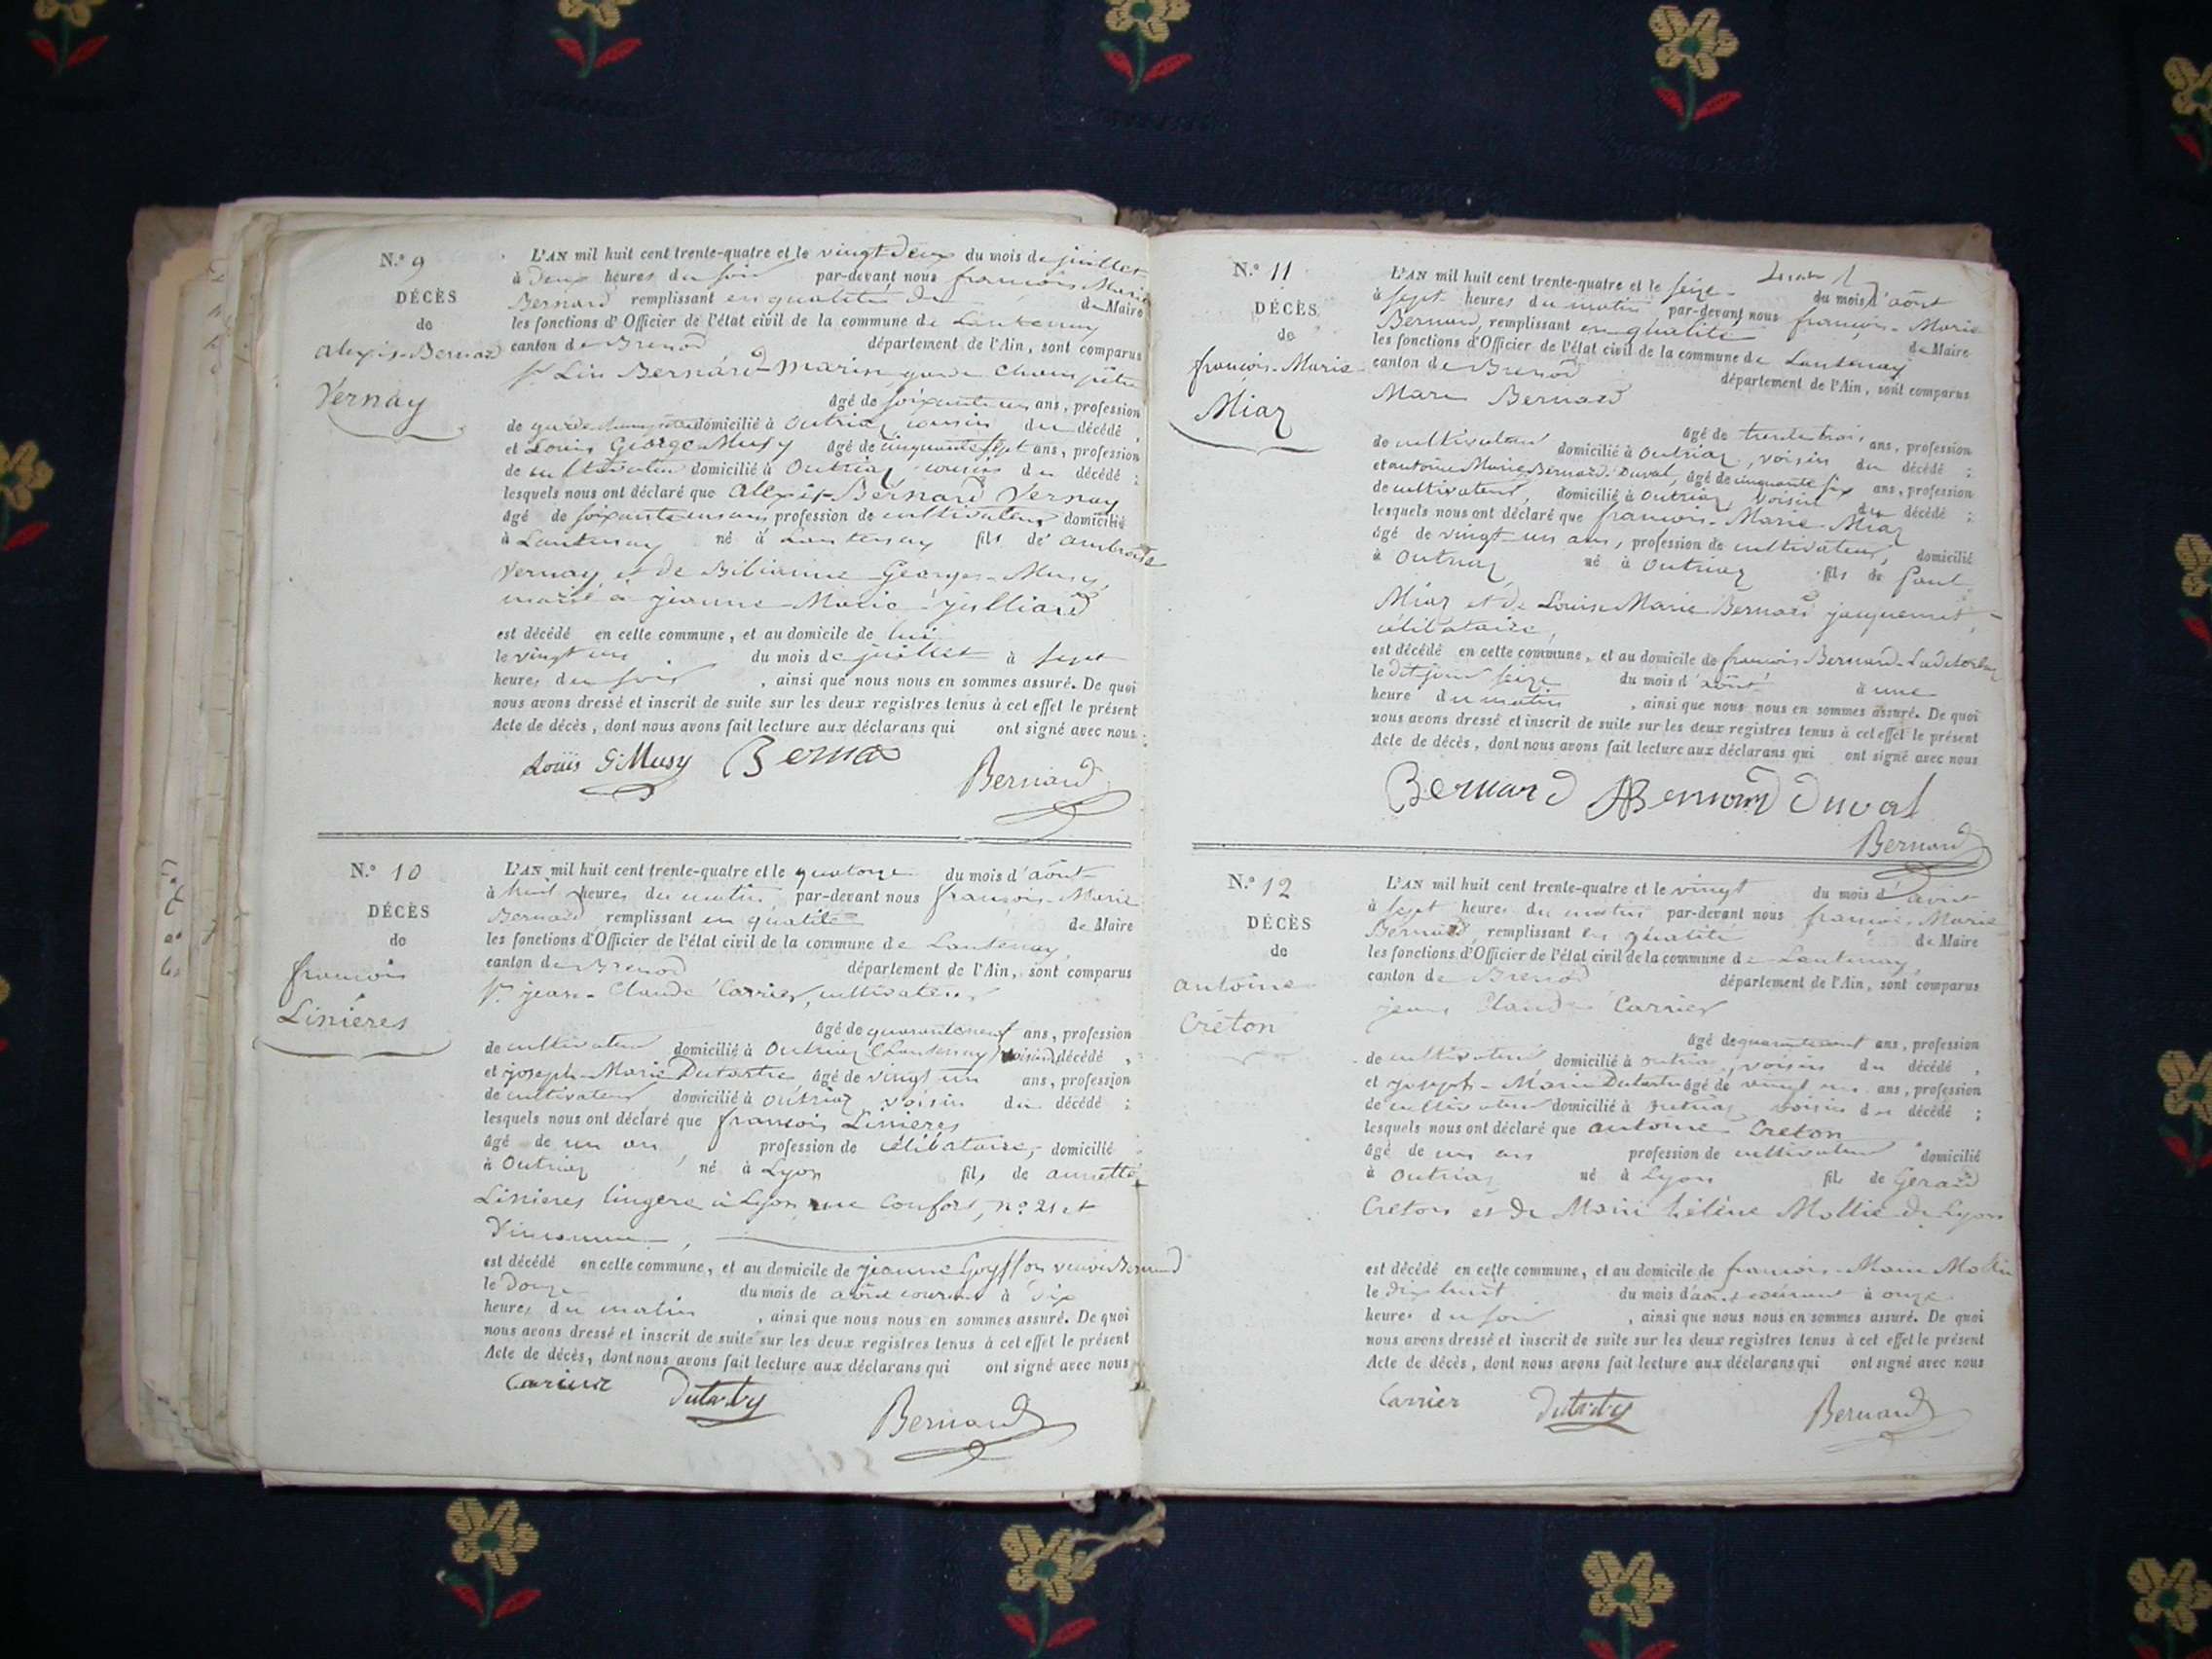 N.° 9
DÉCÈS
de
Alexis-Bernard
Vernay
L'AN mil huit cent trente-quatre et le vingt deux du mois de juillet
à deux heures du soir par-devant nous françois Marie
Bernard remplissant en qualité de Maire
les fonctions d'Officier de l'état civil de la commune de Lantenay
canton de Brenod département de l'Ain, sont comparus
Bernard garde champêtre
âgé de ans, profession
de domicilié à Outriaz cousin du décédé,
et Louis George Musy âgé de cinquante sept ans, profession
de cultivateur domicilié à Outriaz cousin du décédé ;
lesquels nous ont déclaré que Alexis-Bernard Vernay
âgé de profession de cultivateur domicilié
à Lantenay né à Lantenay fils de ambroise
Vernay et de Bibianne Georges-Musy,
marié à jeanne-Marie julliard
est décédé en cette commune, et au domicile de lui
le vingt un du mois de juillet à sept
heures du soir, ainsi que nous nous en sommes assuré. De quoi
nous avons dressé et inscrit de suite sur les deux registres tenus à cet effet le présent
Acte de décès, dont nous avons fait lecture aux déclarans qui ont signé avec nous.
Louis G Musy Bernard
Bernard
N.° 10
DÉCÈS
de
françois
Linières
L'AN mil huit cent trente-quatre et le quatorze du mois d'août
à huit heures du matin, par-devant nous françois-Marie
Bernard remplissant en qualité de Maire
les fonctions d'Officier de l'état civil de la commune de Lantenay,
canton de Brenod département de l'Ain, sont comparus
Sr jean-Claude Carrier, cultivateur
âgé de quarante neuf ans, profession
de cultivateur domicilié à Outriaz (Lantenay) voisin décédé,
et joseph-Marie Dutartre, âgé de vingt un ans, profession
de cultivateur domicilié à Outriaz voisin du décédé ;
lesquels nous ont déclaré que françois Linières
âgé de un an, profession de célibataire, domicilié
à Outriaz, né à Lyon fils de annette
Linieres lingere à Lyon rue Confort, n° 21 et
est décédé en cette commune, et au domicile de jeanne Goyffon veuve Bernard
le douze du mois de août courant à dix
heures du matin, ainsi que nous nous en sommes assuré. De quoi
nous avons dressé et inscrit de suite sur les deux registres tenus à cet effet le présent
Acte de décès, dont nous avons fait lecture aux déclarans qui ont signé avec nous
Carrier
Bernard
N.° 11
DÉCÈS
de
françois-Marie
Miaz
L'AN mil huit cent trente-quatre et le seize du mois d'août
à sept heures du matin, par-devant nous françois-Marie
Bernard, remplissant en qualité de Maire
les fonctions d'Officier de l'état civil de la commune de Lantenay
canton de Brenod département de l'Ain, sont comparus
Marin Bernard
âgé de trente trois ans, profession
de cultivateur domicilié à Outriaz, voisin du décédé ;
et antoine Marie Bernard-Duval, âgé de cinquante six ans, profession
de cultivateur, domicilié à Outriaz voisin du décédé ;
lesquels nous ont déclaré que françois-Marie-Miaz
âgé de vingt-un ans, profession de cultivateur, domicilié
à Outriaz né à Outriaz fils de Paul
Miaz et de Louise Marie Bernard jacquemet,
célibataire,
est décédé en cette commune, et au domicile de françois-Bernard
le dit jour seize du mois d'août à une
heure du matin, ainsi que nous nous en sommes assuré. De quoi
nous avons dressé et inscrit de suite sur les deux registres tenus à cet effet le présent
Acte de décès, dont nous avons fait lecture aux déclarans qui ont signé avec nous
Bernard Bernard Duval
Bernard
N.° 12
DÉCÈS
de
antoine
Créton
L'AN mil huit cent trente-quatre et le vingt du mois d'
à sept heures du matin par-devant nous françois-Marie
Bernard, remplissant en qualité de Maire
les fonctions d'Officier de l'état civil de la commune de Lantenay,
canton de Brenod département de l'Ain, sont comparus
jean Claude Carrier
âgé de ans, profession
de cultivateur domicilié à outriaz, voisin du décédé,
et joseph-Marie Dutartre âgé de vingt un ans, profession
de cultivateur domicilié à outriaz voisin du décédé ;
lesquels nous ont déclaré que antoine Creton
âgé de un an profession de cultivateur domicilié
à Outriaz né à Lyon fils de Gerard
Creton et de Marie hélène Mollié de Lyon
est décédé en cette commune, et au domicile de françois-Marie
le dix huit du mois d'août courant à onze
heures du soir, ainsi que nous nous en sommes assuré. De quoi
nous avons dressé et inscrit de suite sur les deux registres tenus à cet effet le présent
Acte de décès, dont nous avons fait lecture aux déclarans qui ont signé avec nous
Carrier
Bernard